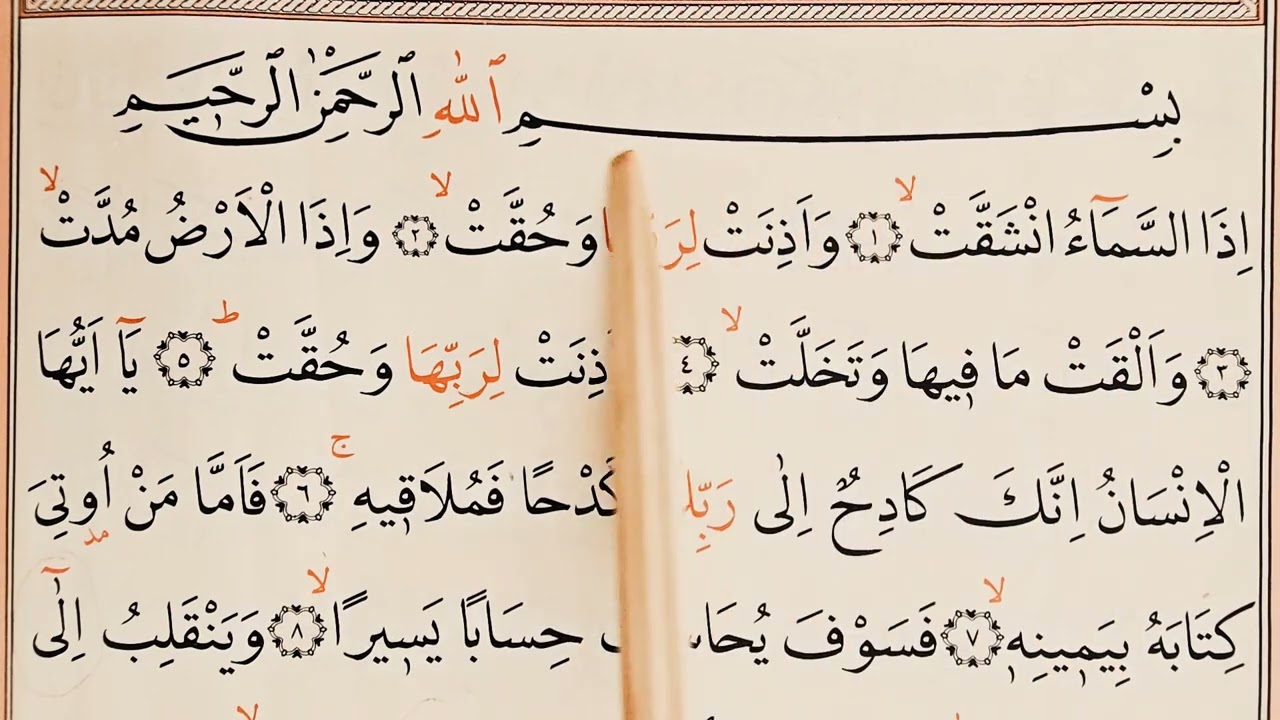 بِسْمِ ٱللّٰهِ ٱلرَّحْمٰنِ ٱلرَّحِيمِ
اِذَا السَّمَٓاءُ انْشَقَّتْۙ ﴿١﴾ وَاَذِنَتْ وَحُقَّتْۙ ﴿٢﴾ وَاِذَا الْاَرْضُ مُدَّتْۙ
﴿٣﴾ وَاَلْقَتْ مَا فِيهَا وَتَخَلَّتْۙ ﴿٤﴾ ذِنَتْ لِرَبِّهَا وَحُقَّتْۜ ﴿٥﴾ يَٓا اَيُّهَا
الْاِنْسَانُ اِنَّكَ كَادِحٌ اِلٰى كَدْحًا فَمُلَاقِيهِۚ ﴿٦﴾ فَاَمَّا مَنْ اُو۫تِيَ
كِتَابَهُ بِيَمِينِهِۙ ﴿٧﴾ فَسَوْفَ حِسَابًا يَسِيرًاۙ ﴿٨﴾ وَيَنْقَلِبُ اِلٰٓى